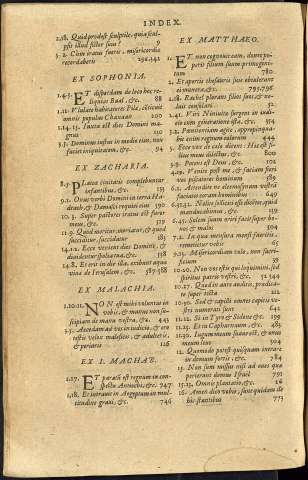 INDEX.
2.18. Quid prodest sculptile, quia sculpsit
illud fictor suus? 9
3.2. Cùm iratus fueris, misericordiæ
recordaberis 292.341
EX SOPHONIA.
1.4.5. ET disperdam de loco hoc reliquias
Baal, &c. 88
1.11. Vlulate habitatores Pilæ, conticuit
omnis populus Chanaan 200
1.14.15. Iuxta est dies Domini magnus
3.5. Dominus iustus in medio eius, non
faciet iniquitatem, &c. 94
EX ZACHARIA.
8.5. PLateæ ciuitatis complebuntur
infantibus, &c. 133
9.1. Onus verbi Domini in terra Hadrach,
& Damasci requiei eius 190
10.3. Super pastores iratus est furor
meus, &c.
11.9. Quod moritur, moriatur, & quod
succiditur, succidatur
14.1.2. Ecce venient dies Domini, &
diuidentur spolia tua, &c. 138
14.8. Et erit in die illa, exibunt aquæ
viuæ de Ierusalem, &c. 387.388
EX MALACHIA.
1.10.11. NON est mihi voluntas in
vobis, & munus non suscipiam
de manu vestra, &c. 443
3.5. Accedam ad vos in iudicio, & ero
testis velox maleficis, & adulteris,
& periuris 116
EX I. MACHAB.
1.17. ET paratū est regnum in conspectu
Antiochi, &c. 747
1.18. Et intrauit in Aegyptum in multitudine
graui, &c. 746
EX MATTHAEO.
1. ET non cognoscebat eam, donec peperit
filium suum primogenitum
780
2. Et apertis thesauris suis obtulerunt
ei munera, &c. 795.796
2.18. Rachel plorans filios suos, & noluit
consolari 52
2.41. Viri Niniuitæ surgent in iudicio
cum generatione ista
3.2. Pœnitentiam agite, appropinquauit
enim regnum cælorum 444
3. Ecce vox de cælo dicens: Hic est filius
meus dilectus, &c. 80
Potest est Deus de lapidibus 102
4.19. Venite post me, & faciam fieri
vos piscatores hominum 589
6.1. Attendite ne eleemosynam vestram
faciatis coram hominibus 649
6.31. Nolite solliciti esse dicētes, quid
manducabimus, &c. 159
Solem suum oriri facit super bonos
& malos 304
7.2. In qua mensura mensi fueritis,
remetietur vobis 65
9.13. Misericordiam volo, & non sacrificium
39
10.20. Non vos estis qui loquimini, sed
spiritus patris vestri, &c. 52.344
10.27. Quod in aure auditis, prædicate
super tecta
10.30. Sed & capilli omnes capitis vestri
numerati sunt 642
11.21. Si in Tyro & Sidone &c. 199
11. Et tu Capharnaum, &c. 383
11.29. Iugum meum suaue est, & onus
meum leue
12. Quomodo potest quisquam intrare
in domum fortis, &c. 784
15. Non sum missus nisi ad oues quæ
perierunt domus Israel 791
15.13. Omnis plantatio, &c.
16. Amen dico vobis, sunt quidam de
hic stantibus 773